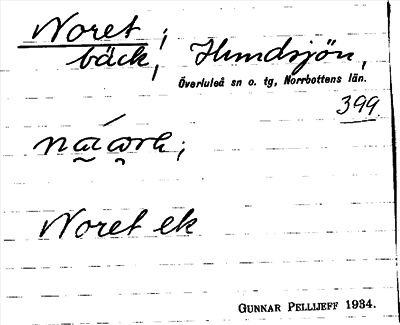 Noret;
bäck, Hundsjön,
Överluleå sn o. tg, Norrbottens län.
399
Noret ek
GUNNAR PELLIJEFF 1934.